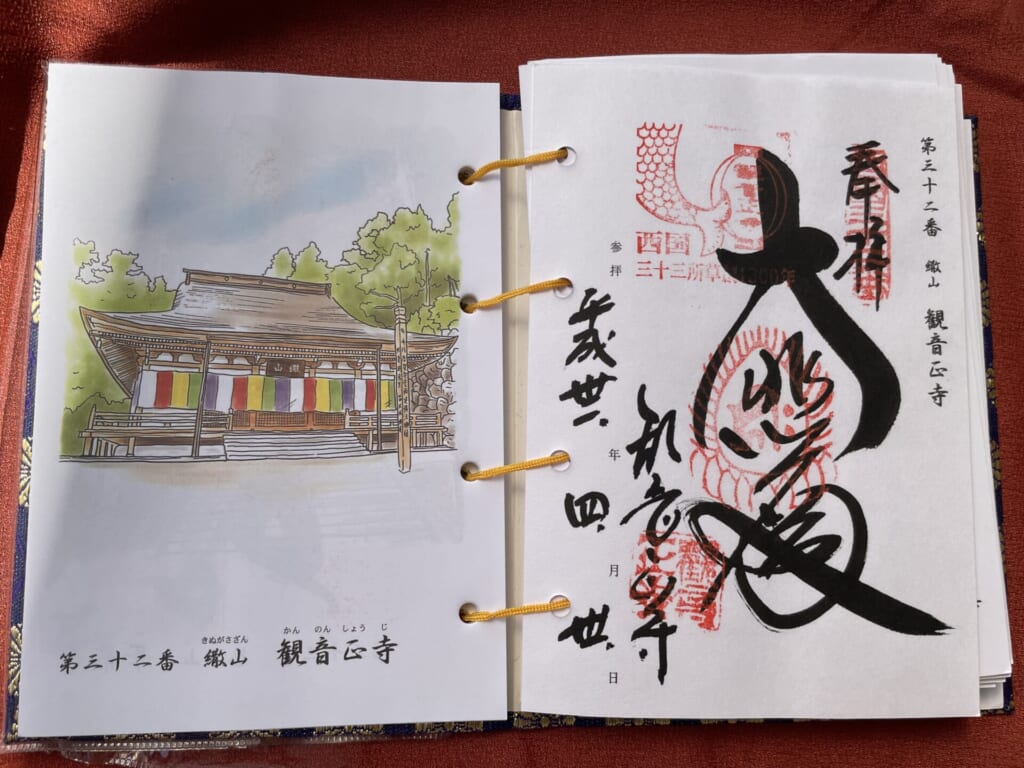 山繖
きぬがさざん かん のん しょう じ
第三十二番 繖山 観音正寺
第三十二番 繖山 観音正寺
奉拝
大悲殿
西国
三十三所草創1300年
観音正寺
参拝 平成丗一年四月丗日